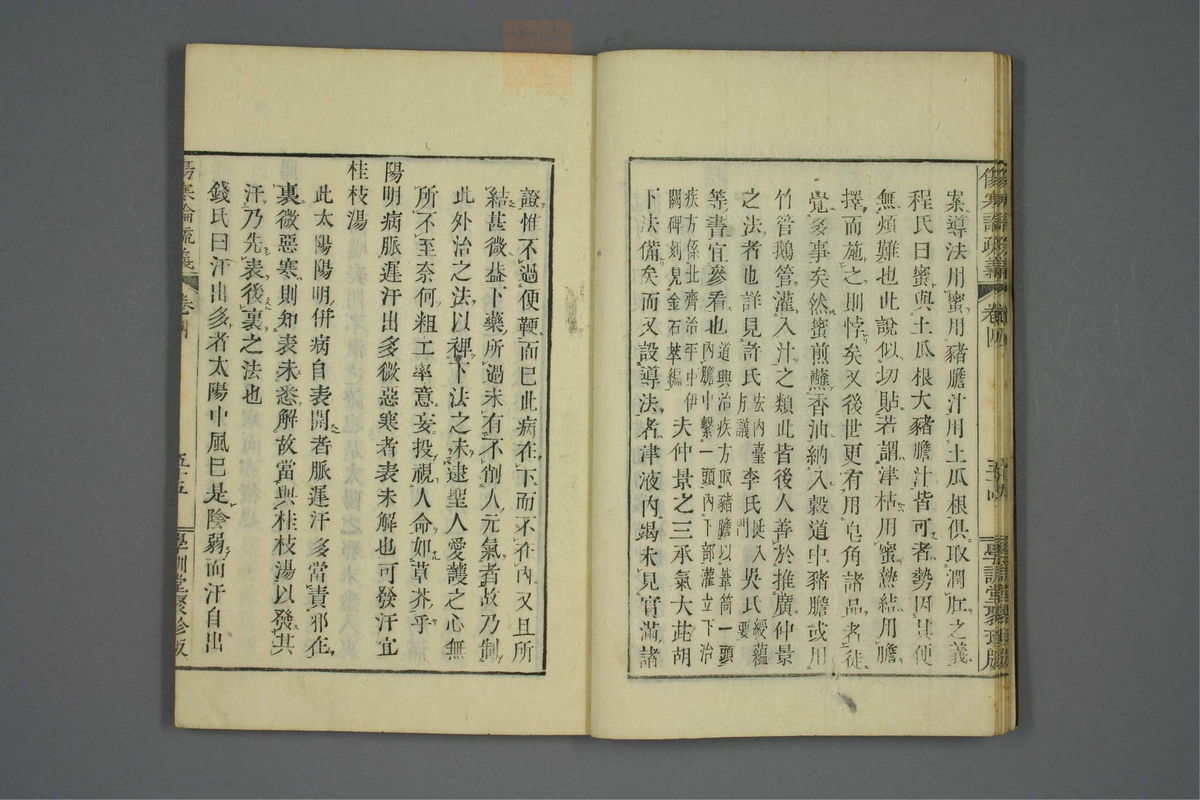 案導法用蜜用豬膽汁用土瓜根俱取潤肛之義
程氏曰蜜與土瓜根大豬膽汁皆可者勢因其便
無煩難也此說似切貼若謂津枯用蜜熱結用膽
擇而施之則悖矣又後世更有用皂角諸品者徒
覺多事矣然蜜煎蘸香油納入穀道中豬膽或用
竹管鵝管灌入汁之類此皆後人善於推廣仲景
之法者也詳見許氏內臺方議李氏挺入門吳氏綬蘊要
等書宜參看也道興治疾方取豬膽以葦筒一頭內膽中繫一頭內下部灌立下治
疾方係北齊治平中伊闕碑刻見金石萃編夫仲景之三承氣大茈胡
下法備矣而又設導法者津液內竭未見實滿諸
傷寒論疏義
卷四
學訓堂聚珍版
證惟不過便鞕而已此病在下而不在內又且所
結甚微益下藥所過未有不削人元氣者故乃制
此外治之法以裨下法之未逮聖人愛護之心無
所不至奈何粗工率意妄投視人命如草芥乎
陽明病脈遲汗出多微惡寒者表未解也可發汗宜
桂枝湯
此太陽陽明併病自表開者脈遲汗多當責邪在
裏微惡寒則知表未悉解故當與桂枝湯以發其
汗乃先表後裏之法也
錢氏曰汗出多者太陽中風已是陰弱而汗自出
傷寒論疏義
卷四
五十五
學訓堂聚珍版